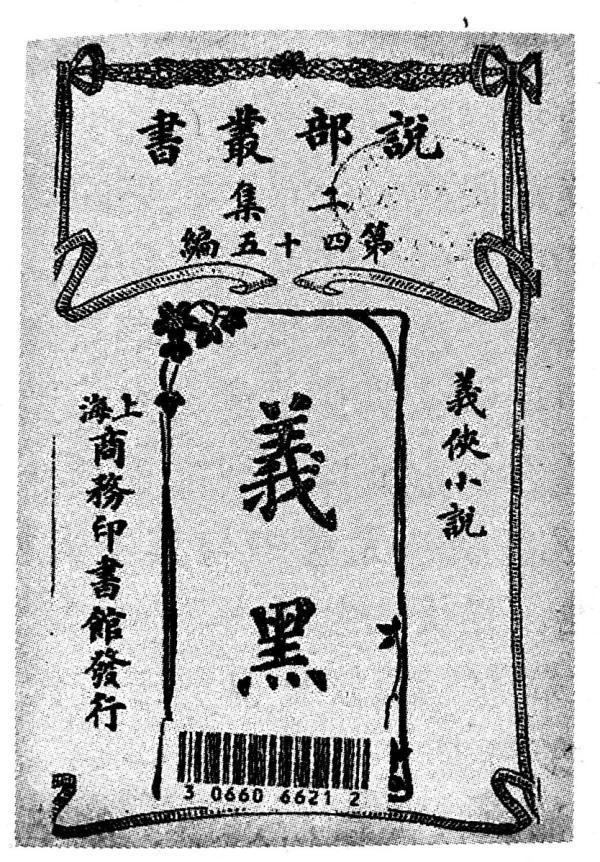 說部叢書
二集
第四十五編
義俠小說
義黑
上海
商務印書館發行
3 0660 6621 2